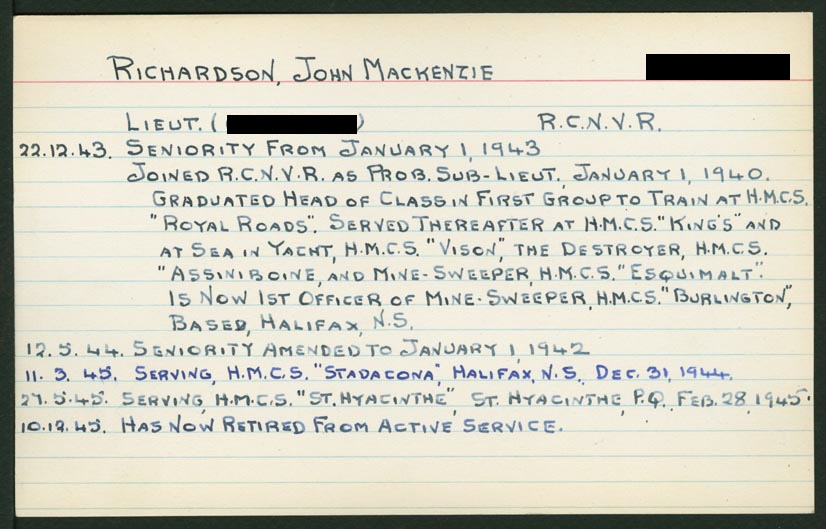 RICHARDSON, JOHN MACKENZIE
LIEUT. ( ) R.C.N.V.R.
22.12.43. SENIORITY FROM JANUARY 1, 1943
JOINED R.C.N.V.R. AS PROB. SUB-LIEUT., JANUARY 1, 1940.
GRADUATED HEAD OF CLASS IN FIRST GROUP TO TRAIN AT H.M.C.S.
"ROYAL ROADS". SERVED THEREAFTER AT H.M.C.S. "KING'S" AND
AT SEA IN YACHT, H.M.C.S. "VISON", THE DESTROYER, H.M.C.S.
"ASSINIBOINE, AND MINE-SWEEPER, H.M.C.S. "ESQUIMALT".
IS NOW 1ST OFFICER OF MINE-SWEEPER, H.M.C.S. "BURLINGTON",
BASED, HALIFAX, N.S.
12. 5. 44. SENIORITY AMENDED TO JANUARY 1, 1942
11. 3. 45. SERVING, H.M.C.S. "STADACONA", HALIFAX, N.S., DEC. 31, 1944.
27.5.45. SERVING, H.M.C.S. "ST. HYACINTHE", ST. HYACINTHE, P.Q., FEB. 28, 1945.
10.12.45. HAS NOW RETIRED FROM ACTIVE SERVICE.